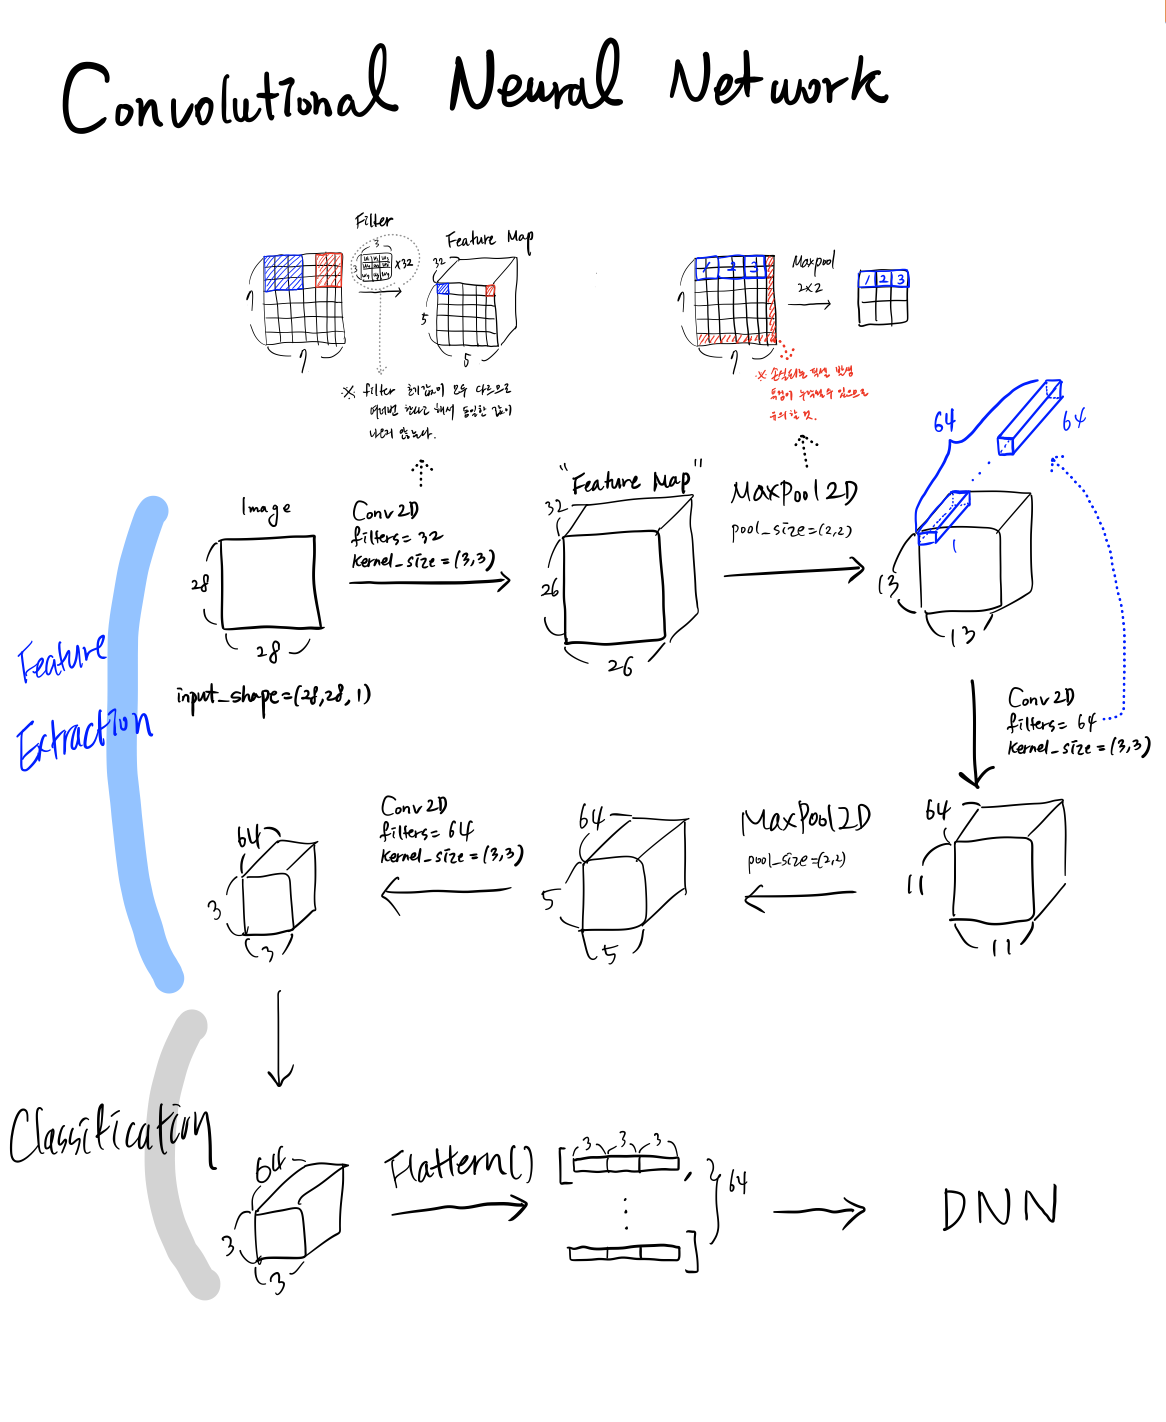 Convolutional Neural Network
Filter
3
3
x32
7
7
Feature Map
32
5
5
※ filter 초기값이 모두 다르므로
여러번 한다고 해서 동일한 값이
나오지 않는다.
1 2 3
7
7
Maxpool
2x2
1 2 3
※ 손실되는 픽셀 발생
특징이 누락될 수 있으므로
유의할 것.
Image
28
28
input_shape=(28,28,1)
Conv2D
filters= 32
kernel_size = (3,3)
"Feature Map"
32
26
26
MaxPool2D
pool_size=(2,2)
64
64
1
13
13
Conv2D
filters= 64
kernel_size = (3,3)
Feature
Extraction
64
11
11
MaxPool2D
pool_size=(2,2)
64
5
5
Conv2D
filters= 64
kernel_size = (3,3)
64
3
3
Classification
64
3
3
Flattern()
[ 3 3 3 ,
⋮
]
64
DNN